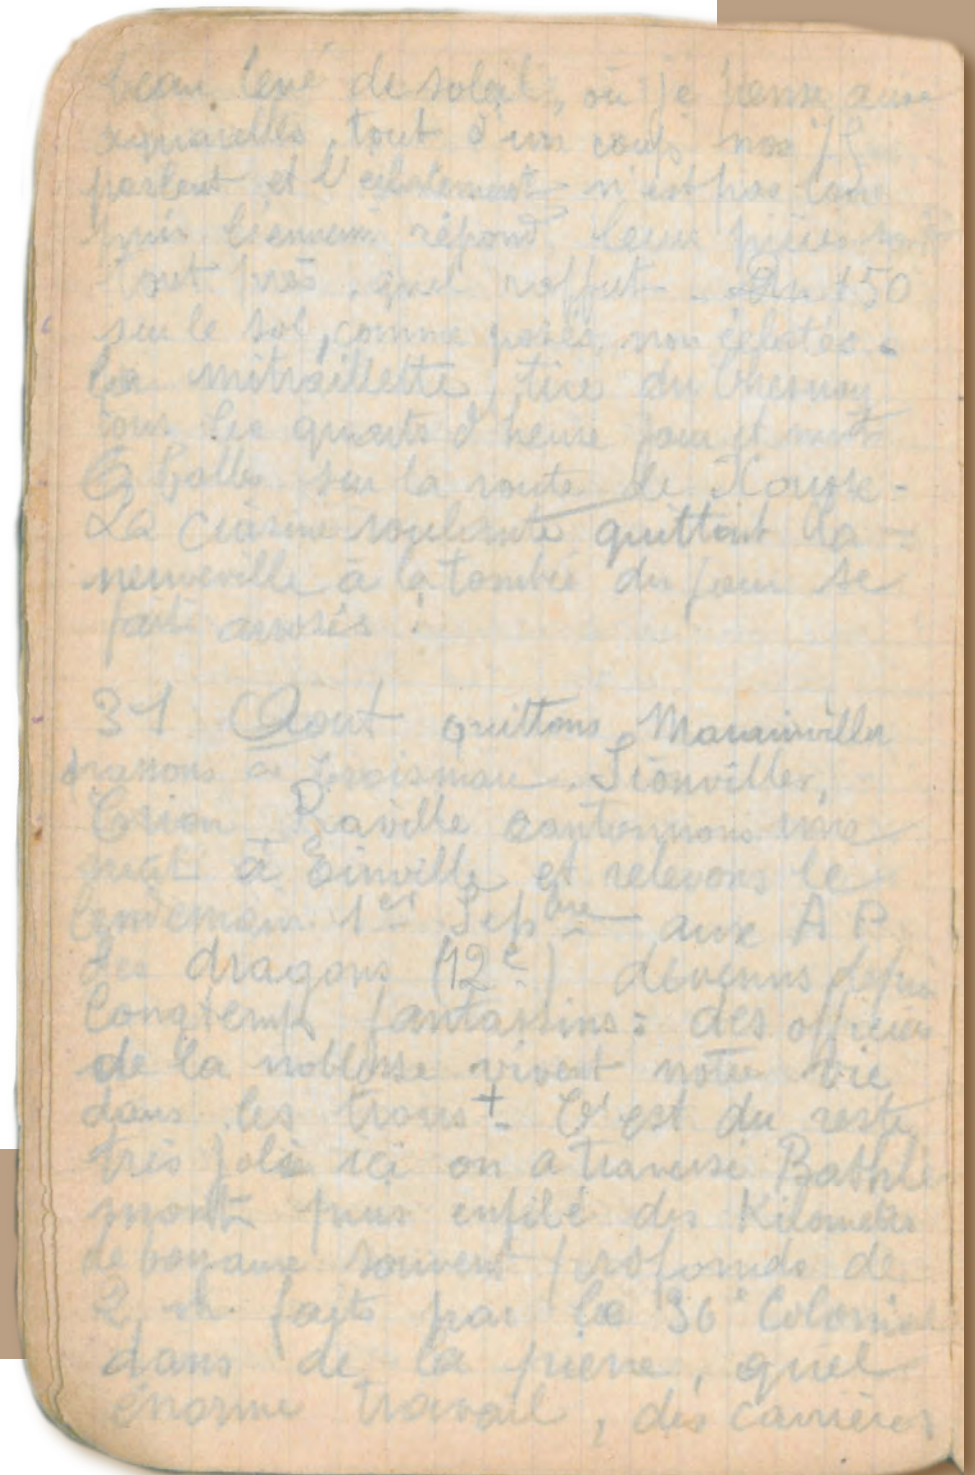 beau levé de soleil, où je pense aux
aquarelles, tout d'un coup nos 75
partent et l'éclatement n'est pas loin
puis l'ennemi répond leurs pièces sont
tout près, quel raffut. Des 150
sur le sol, comme posés, non éclatés.
La mitraillette tire du
tous les quarts d'heure jour et nuit
6 balles sur la route de
La Cuisine roulante quittant la
neuveville à la tombée du jour se
fait arrosés !
31 Aout quittons Marainviller
passons à Croismare. Sionviller,
Crion Raville cantonnons une
nuit à Einville et relevons le
lendemain 1er Sepbre aux A P.
des dragons (12e) devenus depuis
longtemps fantassins : des officiers
de la noblesse vivent notre vie
dans les trous +. C'est du reste
très joli ici on a traversé Bathlé
mont puis enfilé des Kilometres
de boyaux souvent profonds de
2 m. faits par le 36e Colonial
dans de la pierre, quel
énorme travail, des carrières